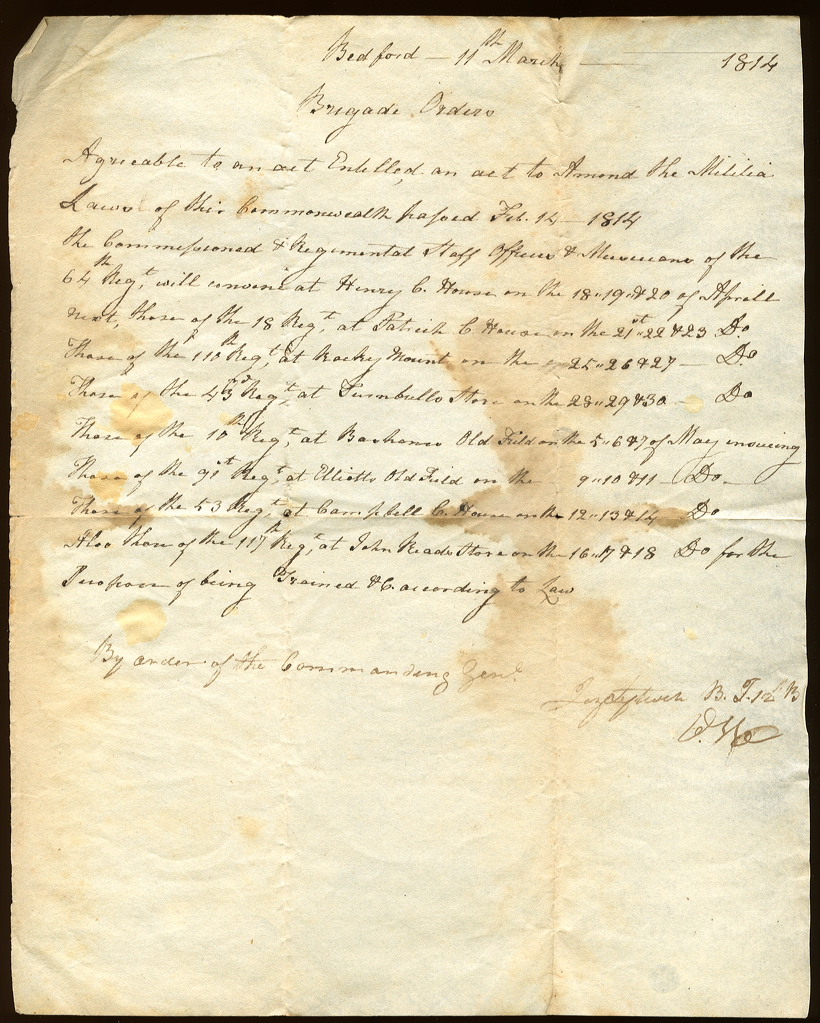 Bedford — 11th March — 1814
Brigade Orders
Agreeable to an act Entilled, an act to Amond the Militia
Laws of this Commonwealth passed Feb. 14 — 1814
the Commissioned & Regimental Staff Officers & Musicians of the
64th Regt. will convene at Henry C. House on the 18..19..& 20 of Aprill
next, those of the 18 Regt. at Patrick C House on the 21st..22 & 23 Do.
Those of the 110th Regt. at Rocky Mount on the 25..26 & 27 — Do.
Those of the 43rd Regt. at Turnbulls Store on the 28..29 & 30 — Do
Those of the 10th Regt. at Old Field on the 5..6 & 7 of May insueing
Those of the 91st Regt. at Elliotts Old Field on the 9..10 & 11 — Do —
Those of the 53 Regt. at Campbell C. House on the 12..13 & 14 Do
Also those of the 117th Regt. at John Reads Store on the 16..17 & 18 Do for the
Purpose of being Trained &C. according to Law
By order of the Commanding Genl.
B. I. 12 B